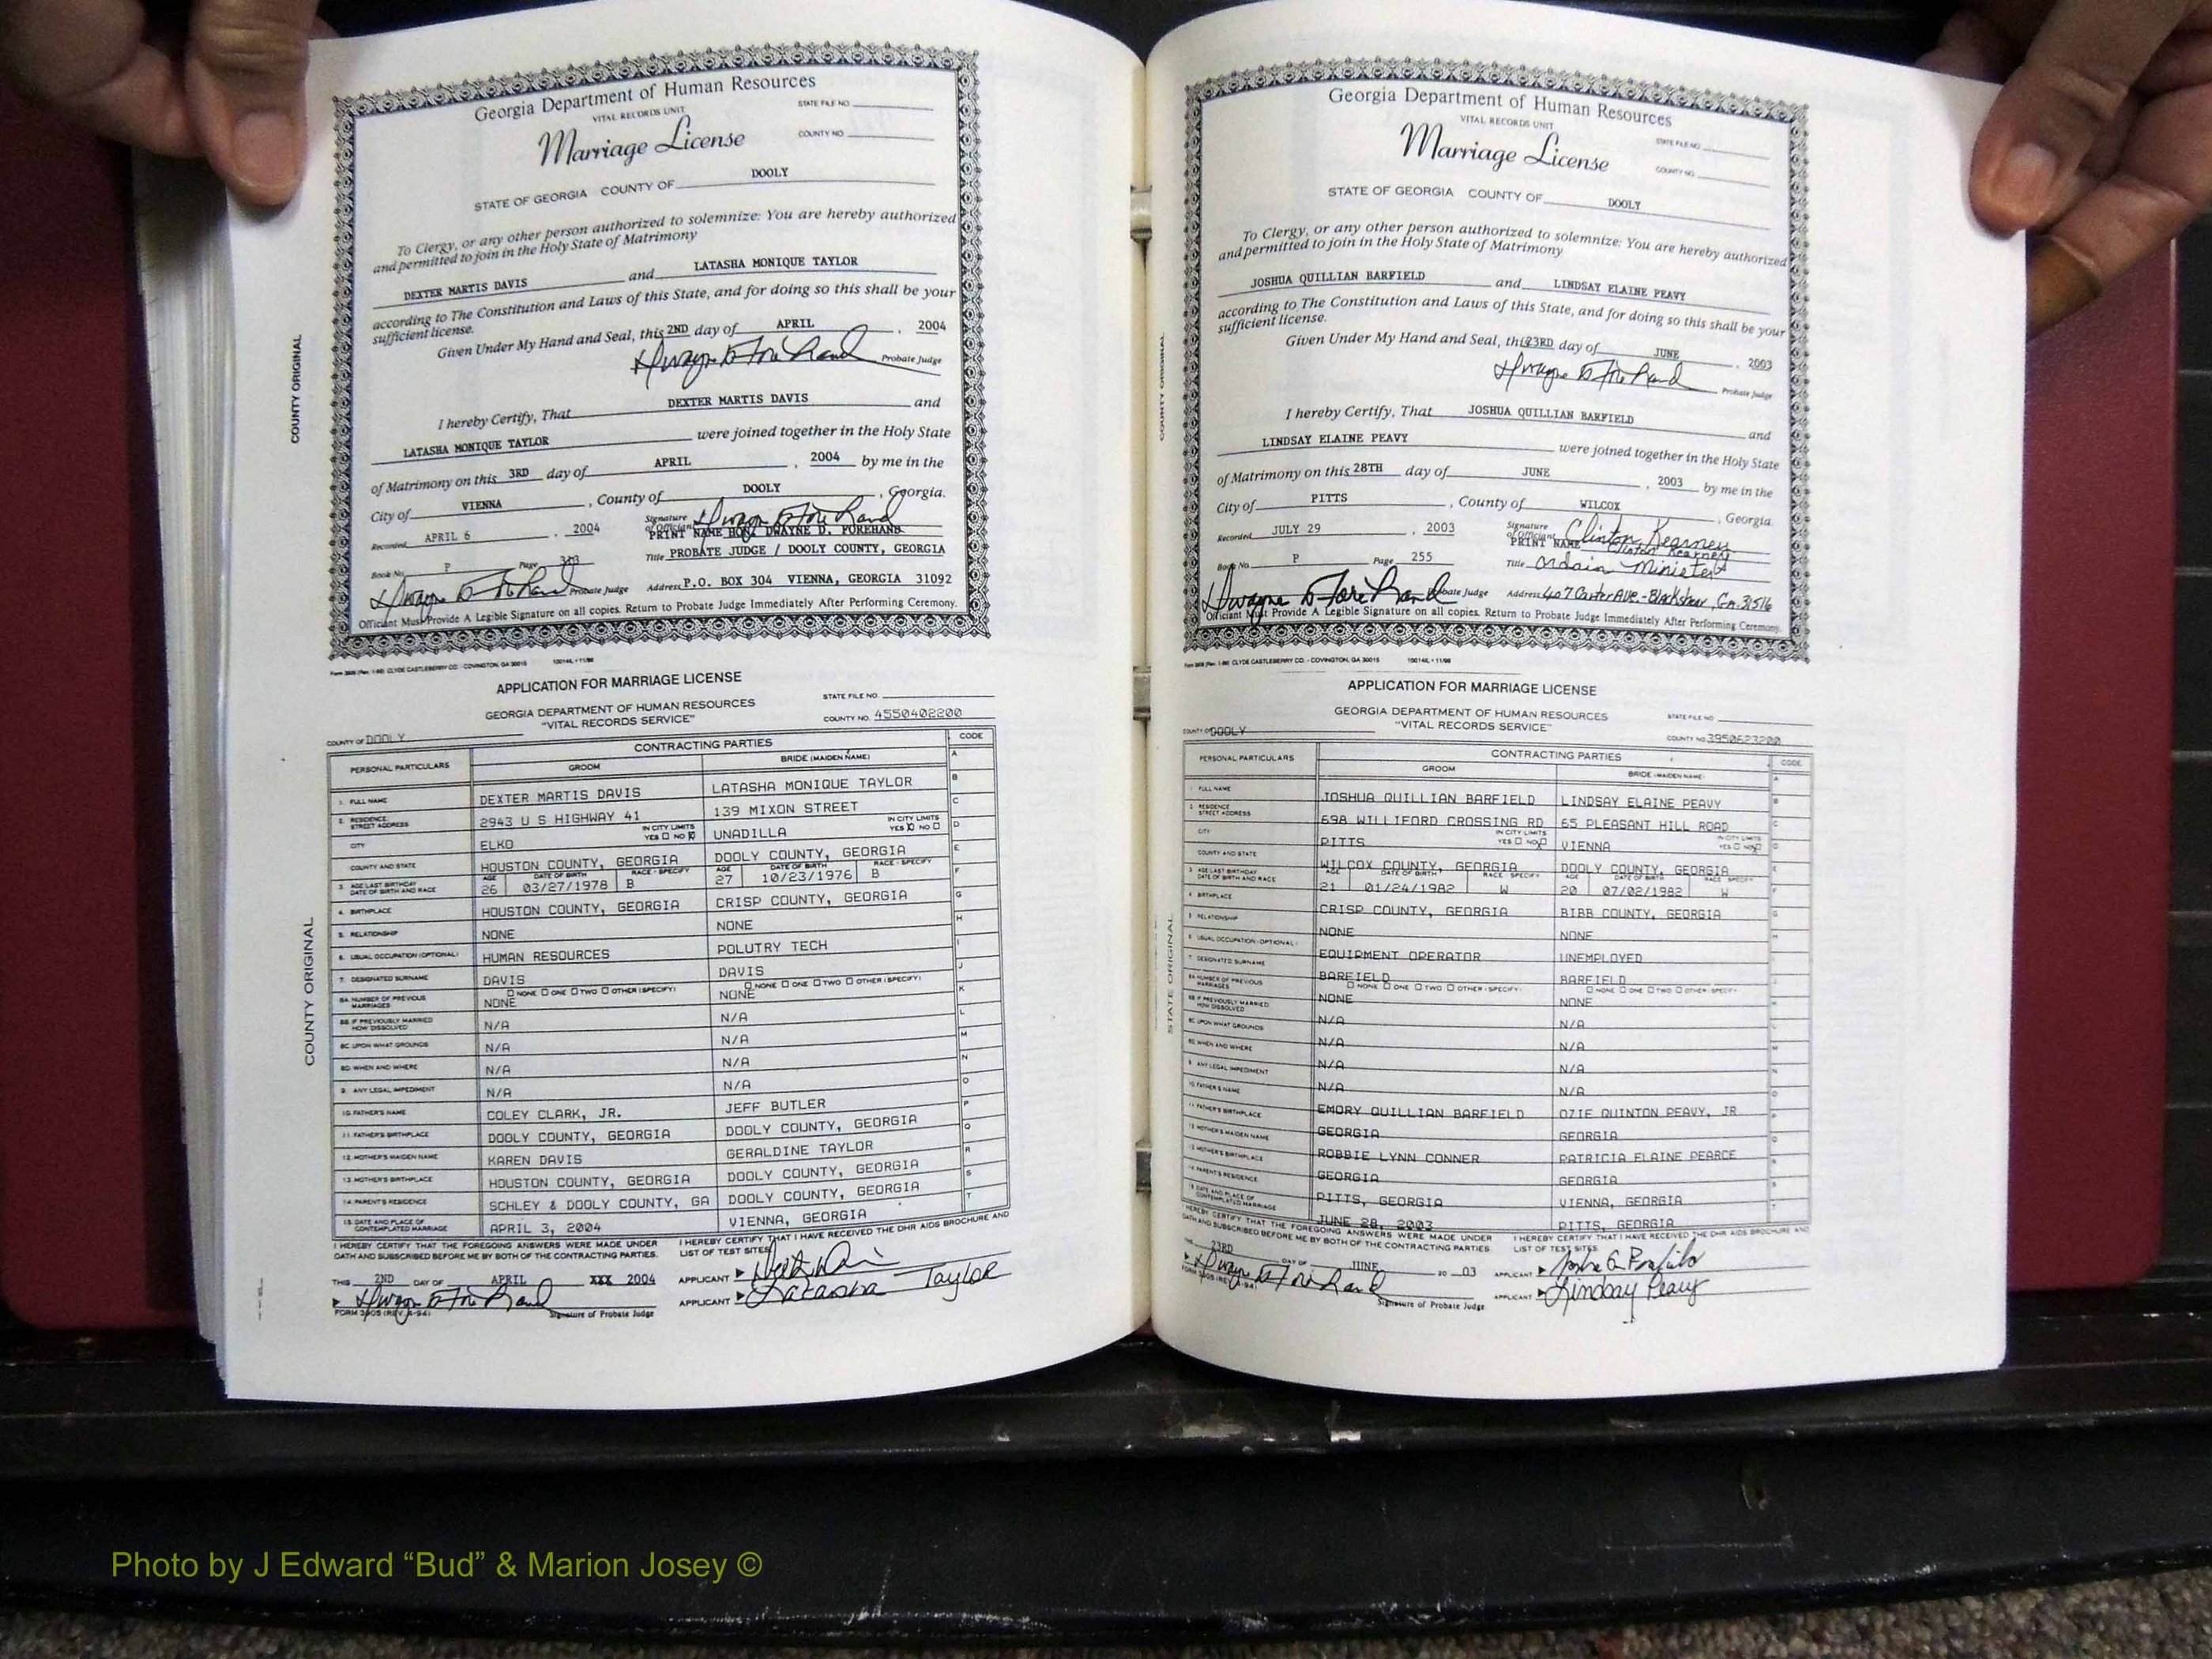 Georgia Department of Human Resources
VITAL RECORDS UNIT
STATE FILE NO.
Marriage License
COUNTY NO.
STATE OF GEORGIA COUNTY OF DOOLY
To Clergy, or any other person authorized to solemnize: You are hereby authorized
and permitted to join in the Holy State of Matrimony
DEXTER MARTIS DAVIS and LATASHA MONIQUE TAYLOR
according to The Constitution and Laws of this State, and for doing so this shall be your
sufficient license.
Given Under My Hand and Seal, this 2ND day of APRIL , 2004
Probate Judge
I hereby Certify, That DEXTER MARTIS DAVIS and
LATASHA MONIQUE TAYLOR were joined together in the Holy State
of Matrimony on this 3RD day of APRIL , 2004 by me in the
City of VIENNA , County of DOOLY , Georgia.
Recorded APRIL 6 , 2004
Signature of Officiant
PRINT NAME HON. DWAYNE D. FOREHAND
Title PROBATE JUDGE / DOOLY COUNTY, GEORGIA
Book No. P Page
Probate Judge Address P.O. BOX 304 VIENNA, GEORGIA 31092
Officiant Must Provide A Legible Signature on all copies. Return to Probate Judge Immediately After Performing Ceremony.
COUNTY ORIGINAL
CLYDE CASTLEBERRY CO. - COVINGTON, GA 30015
APPLICATION FOR MARRIAGE LICENSE
GEORGIA DEPARTMENT OF HUMAN RESOURCES
"VITAL RECORDS SERVICE"
STATE FILE NO.
COUNTY NO. 4550402200
COUNTY OF DOOLY
PERSONAL PARTICULARS CONTRACTING PARTIES CODE
GROOM BRIDE (MAIDEN NAME)
1. FULL NAME DEXTER MARTIS DAVIS LATASHA MONIQUE TAYLOR
2. RESIDENCE STREET ADDRESS 2943 U S HIGHWAY 41 139 MIXON STREET
CITY ELKO IN CITY LIMITS YES NO UNADILLA IN CITY LIMITS YES NO
COUNTY AND STATE HOUSTON COUNTY, GEORGIA DOOLY COUNTY, GEORGIA
3. AGE LAST BIRTHDAY DATE OF BIRTH AND RACE AGE 26 DATE OF BIRTH 03/27/1978 RACE - SPECIFY B AGE 27 DATE OF BIRTH 10/23/1976 RACE - SPECIFY B
4. BIRTHPLACE HOUSTON COUNTY, GEORGIA CRISP COUNTY, GEORGIA
5. RELATIONSHIP NONE NONE
6. USUAL OCCUPATION (OPTIONAL) HUMAN RESOURCES POLUTRY TECH
7. DESIGNATED SURNAME DAVIS DAVIS
8A. NUMBER OF PREVIOUS MARRIAGES NONE ONE TWO OTHER (SPECIFY) NONE NONE ONE TWO OTHER (SPECIFY) NONE
8B. IF PREVIOUSLY MARRIED HOW DISSOLVED N/A N/A
8C. UPON WHAT GROUNDS N/A N/A
8D. WHEN AND WHERE N/A N/A
9. ANY LEGAL IMPEDIMENT N/A N/A
10. FATHER'S NAME COLEY CLARK, JR. JEFF BUTLER
11. FATHER'S BIRTHPLACE DOOLY COUNTY, GEORGIA DOOLY COUNTY, GEORGIA
12. MOTHER'S MAIDEN NAME KAREN DAVIS GERALDINE TAYLOR
13. MOTHER'S BIRTHPLACE HOUSTON COUNTY, GEORGIA DOOLY COUNTY, GEORGIA
14. PARENT'S RESIDENCE SCHLEY & DOOLY COUNTY, GA DOOLY COUNTY, GEORGIA
15. DATE AND PLACE OF CONTEMPLATED MARRIAGE APRIL 3, 2004 VIENNA, GEORGIA
I HEREBY CERTIFY THAT THE FOREGOING ANSWERS WERE MADE UNDER
OATH AND SUBSCRIBED BEFORE ME BY BOTH OF THE CONTRACTING PARTIES.
I HEREBY CERTIFY THAT I HAVE RECEIVED THE DHR AIDS BROCHURE AND
LIST OF TEST SITES.
THIS 2ND DAY OF APRIL XXX 2004
APPLICANT
APPLICANT Latasha Taylor
FORM 3905 (REV. 4-94) Signature of Probate Judge
COUNTY ORIGINAL
Georgia Department of Human Resources
VITAL RECORDS UNIT
STATE FILE NO.
Marriage License
COUNTY NO.
STATE OF GEORGIA COUNTY OF DOOLY
To Clergy, or any other person authorized to solemnize: You are hereby authorized
and permitted to join in the Holy State of Matrimony
JOSHUA QUILLIAN BARFIELD and LINDSAY ELAINE PEAVY
according to The Constitution and Laws of this State, and for doing so this shall be your
sufficient license.
Given Under My Hand and Seal, this 23RD day of JUNE , 2003
Probate Judge
I hereby Certify, That JOSHUA QUILLIAN BARFIELD and
LINDSAY ELAINE PEAVY were joined together in the Holy State
of Matrimony on this 28TH day of JUNE , 2003 by me in the
City of PITTS , County of WILCOX , Georgia.
Recorded JULY 29 , 2003
Signature of Officiant Clinton Kearney
PRINT NAME Clinton Kearney
Book No. P Page 255
Title ordain Minister
Probate Judge Address 407 Carter Ave.-Blackshear, Ga. 31516
Officiant Must Provide A Legible Signature on all copies. Return to Probate Judge Immediately After Performing Ceremony.
COUNTY ORIGINAL
CLYDE CASTLEBERRY CO. - COVINGTON, GA 30015
APPLICATION FOR MARRIAGE LICENSE
GEORGIA DEPARTMENT OF HUMAN RESOURCES
"VITAL RECORDS SERVICE"
STATE FILE NO.
COUNTY NO. 3950623200
COUNTY OF DOOLY
PERSONAL PARTICULARS CONTRACTING PARTIES CODE
GROOM BRIDE (MAIDEN NAME)
1. FULL NAME JOSHUA QUILLIAN BARFIELD LINDSAY ELAINE PEAVY
2. RESIDENCE STREET ADDRESS 698 WILLIFORD CROSSING RD 65 PLEASANT HILL ROAD
CITY PITTS IN CITY LIMITS YES NO VIENNA IN CITY LIMITS YES NO
COUNTY AND STATE WILCOX COUNTY, GEORGIA DOOLY COUNTY, GEORGIA
3. AGE LAST BIRTHDAY DATE OF BIRTH AND RACE AGE 21 DATE OF BIRTH 01/24/1982 RACE - SPECIFY W AGE 20 DATE OF BIRTH 07/02/1982 RACE - SPECIFY W
4. BIRTHPLACE CRISP COUNTY, GEORGIA BIBB COUNTY, GEORGIA
5. RELATIONSHIP NONE NONE
6. USUAL OCCUPATION (OPTIONAL) EQUIPMENT OPERATOR UNEMPLOYED
7. DESIGNATED SURNAME BARFIELD BARFIELD
8A. NUMBER OF PREVIOUS MARRIAGES NONE ONE TWO OTHER (SPECIFY) NONE NONE ONE TWO OTHER (SPECIFY) NONE
8B. IF PREVIOUSLY MARRIED HOW DISSOLVED N/A N/A
8C. UPON WHAT GROUNDS N/A N/A
8D. WHEN AND WHERE N/A N/A
9. ANY LEGAL IMPEDIMENT N/A N/A
10. FATHER'S NAME EMORY QUILLIAN BARFIELD OZIE QUINTON PEAVY, JR
11. FATHER'S BIRTHPLACE GEORGIA GEORGIA
12. MOTHER'S MAIDEN NAME ROBBIE LYNN CONNER PATRICIA ELAINE PEARCE
13. MOTHER'S BIRTHPLACE GEORGIA GEORGIA
14. PARENT'S RESIDENCE PITTS, GEORGIA VIENNA, GEORGIA
15. DATE AND PLACE OF CONTEMPLATED MARRIAGE JUNE 28, 2003 PITTS, GEORGIA
I HEREBY CERTIFY THAT THE FOREGOING ANSWERS WERE MADE UNDER
OATH AND SUBSCRIBED BEFORE ME BY BOTH OF THE CONTRACTING PARTIES
I HEREBY CERTIFY THAT I HAVE RECEIVED THE DHR AIDS BROCHURE AND
LIST OF TEST SITES
THIS 23RD DAY OF JUNE 20 03
APPLICANT
APPLICANT Lindsay Peavy
FORM 3905 (REV. 4-94) Signature of Probate Judge
STATE ORIGINAL
Photo by J Edward “Bud” & Marion Josey ©